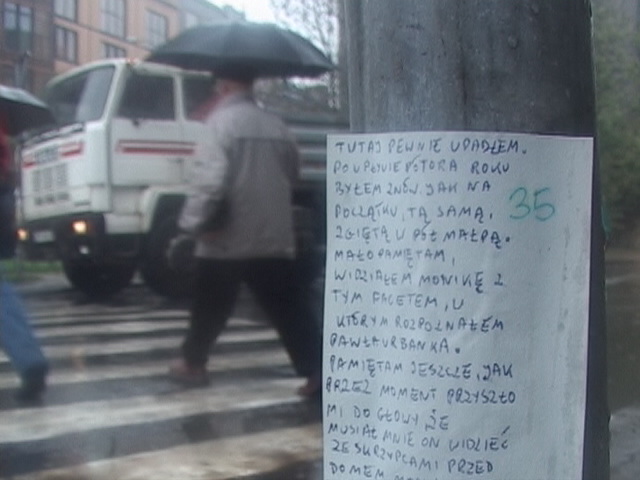 TUTAJ PEWNIE UPADŁEM.
PO UPŁYWIE PÓŁTORA ROKU
BYŁEM ZNÓW, JAK NA
POCZĄTKU, TĄ SAMĄ,
35
ZGIĘTĄ W PÓŁ MAŁPĄ.
MAŁO PAMIĘTAM,
WIDZIAŁEM MONIKĘ Z
TYM FACETEM, W
KTÓRYM ROZPOZNAŁEM
PAWŁA URBANKA.
PAMIĘTAM JESZCZE, JAK
PRZEZ MOMENT PRZYSZŁO
MI DO GŁOWY, ŻE
MUSIAŁ MNIE ON WIDZIEĆ
ZE SKRZYPCAMI PRZED
DOMEM